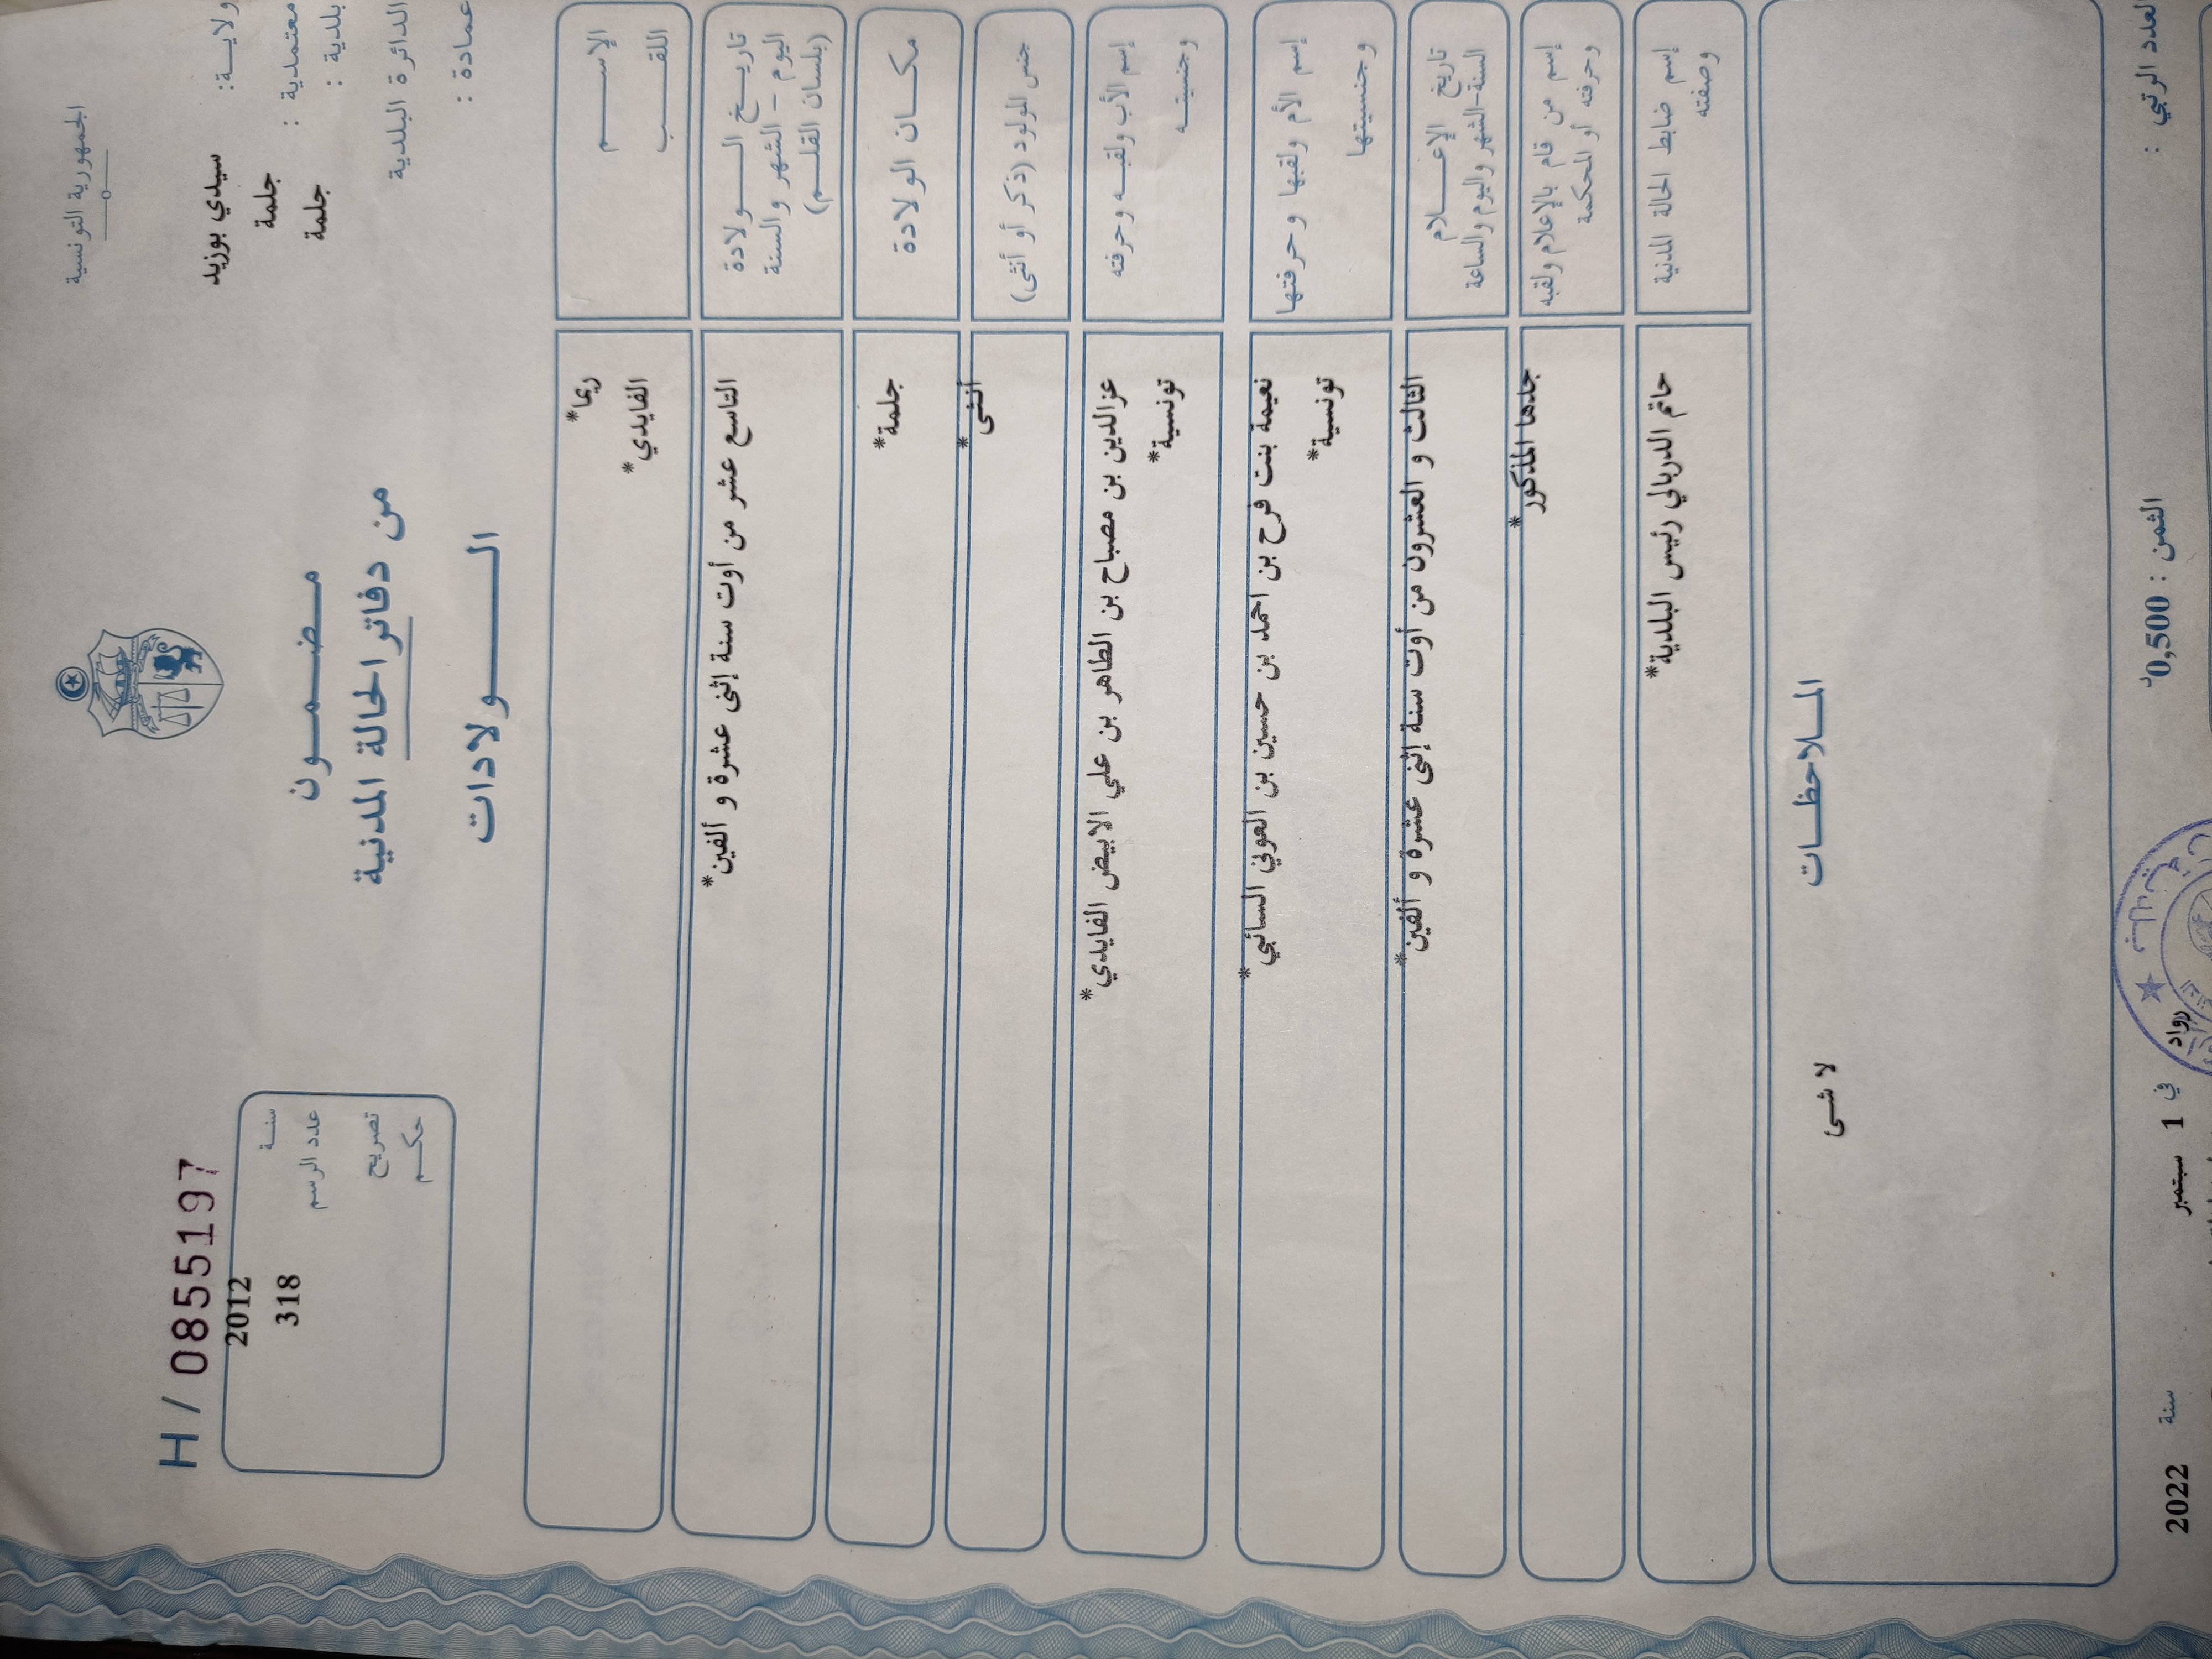 الجمهورية التونسية
H / 0855197
ولايـة: سيدي بوزيد
معتمدية : جلمة
بلدية : جلمة
الدائرة البلدية
عمادة :
مضمــون
من دفاتر الحالة المدنية
الــولادات
سنـة 2012
عدد الرسم 318
تصريح
حكـم
الإســـم ريما*
اللقـــب الفايدي*
تاريــخ الــــولادة
اليوم - الشهر والسنة
(بلسان القلـــم)
التاسع عشر من أوت سنة إثنى عشرة و ألفين*
مكــان الولادة جلمة*
جنس المولود (ذكر أو أنثى) أنثى*
إسم الأب ولقبـه وحرفته عزالدين بن مصباح بن الطاهر بن علي الابيض الفايدي*
وجنسيتــه تونسية*
إسم الأم ولقبها وحرفتها نعيمة بنت فرح بن احمد بن حسين بن العوني السائبي*
وجنسيتها تونسية*
تاريخ الإعــــلام
السنة-الشهر واليوم والساعة
الثالث و العشرون من أوت سنة إثنى عشرة و ألفين*
إسم من قام بالإعلام ولقبه
وحرفته أو المحكمة
جدها المذكور*
إسم ضابط الحالة المدنية
وصفته
حاتم الدربالي رئيس البلدية*
المــلاحظــات
لا شى
العدد الرتبي :
الثمن : 0,500د
رواد في 1 سبتمبر سنة 2022